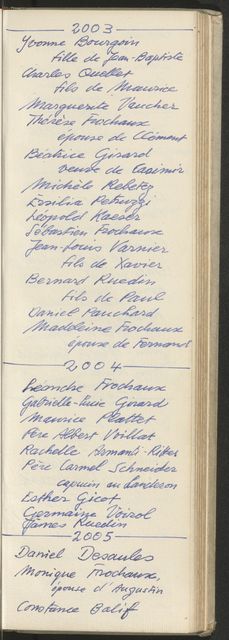 2003
Yvonne Bourgoin
fille de Jean-Baptiste
Charles Quellet
fils de Maurice
Marguerite Vaucher
Thérèse Frochaux
épouse de Clément
Béatrice Girard
veuve de Casimir
Michèle Rebetez
Ersilia Petruzzi
Léopold Kaeser
Sébastien Frochaux
Jean-Louis Varnier
fils de Xavier
Bernard Ruedin
fils de Paul
Daniel Panchard
Madeleine Frochaux
épouse de Fernand
2004
Frochaux
Gabrielle-Lucie Girard
Maurice Plattet
Père Albert Voillat
Rachelle Armanti-Ritter
Père Carmel Schneider
capucin au Landeron
Esther Gicot
Germaine Voisol
James Ruedin
2005
Daniel Desaules
Monique Frochaux,
épouse d'Augustin
Constance Galif